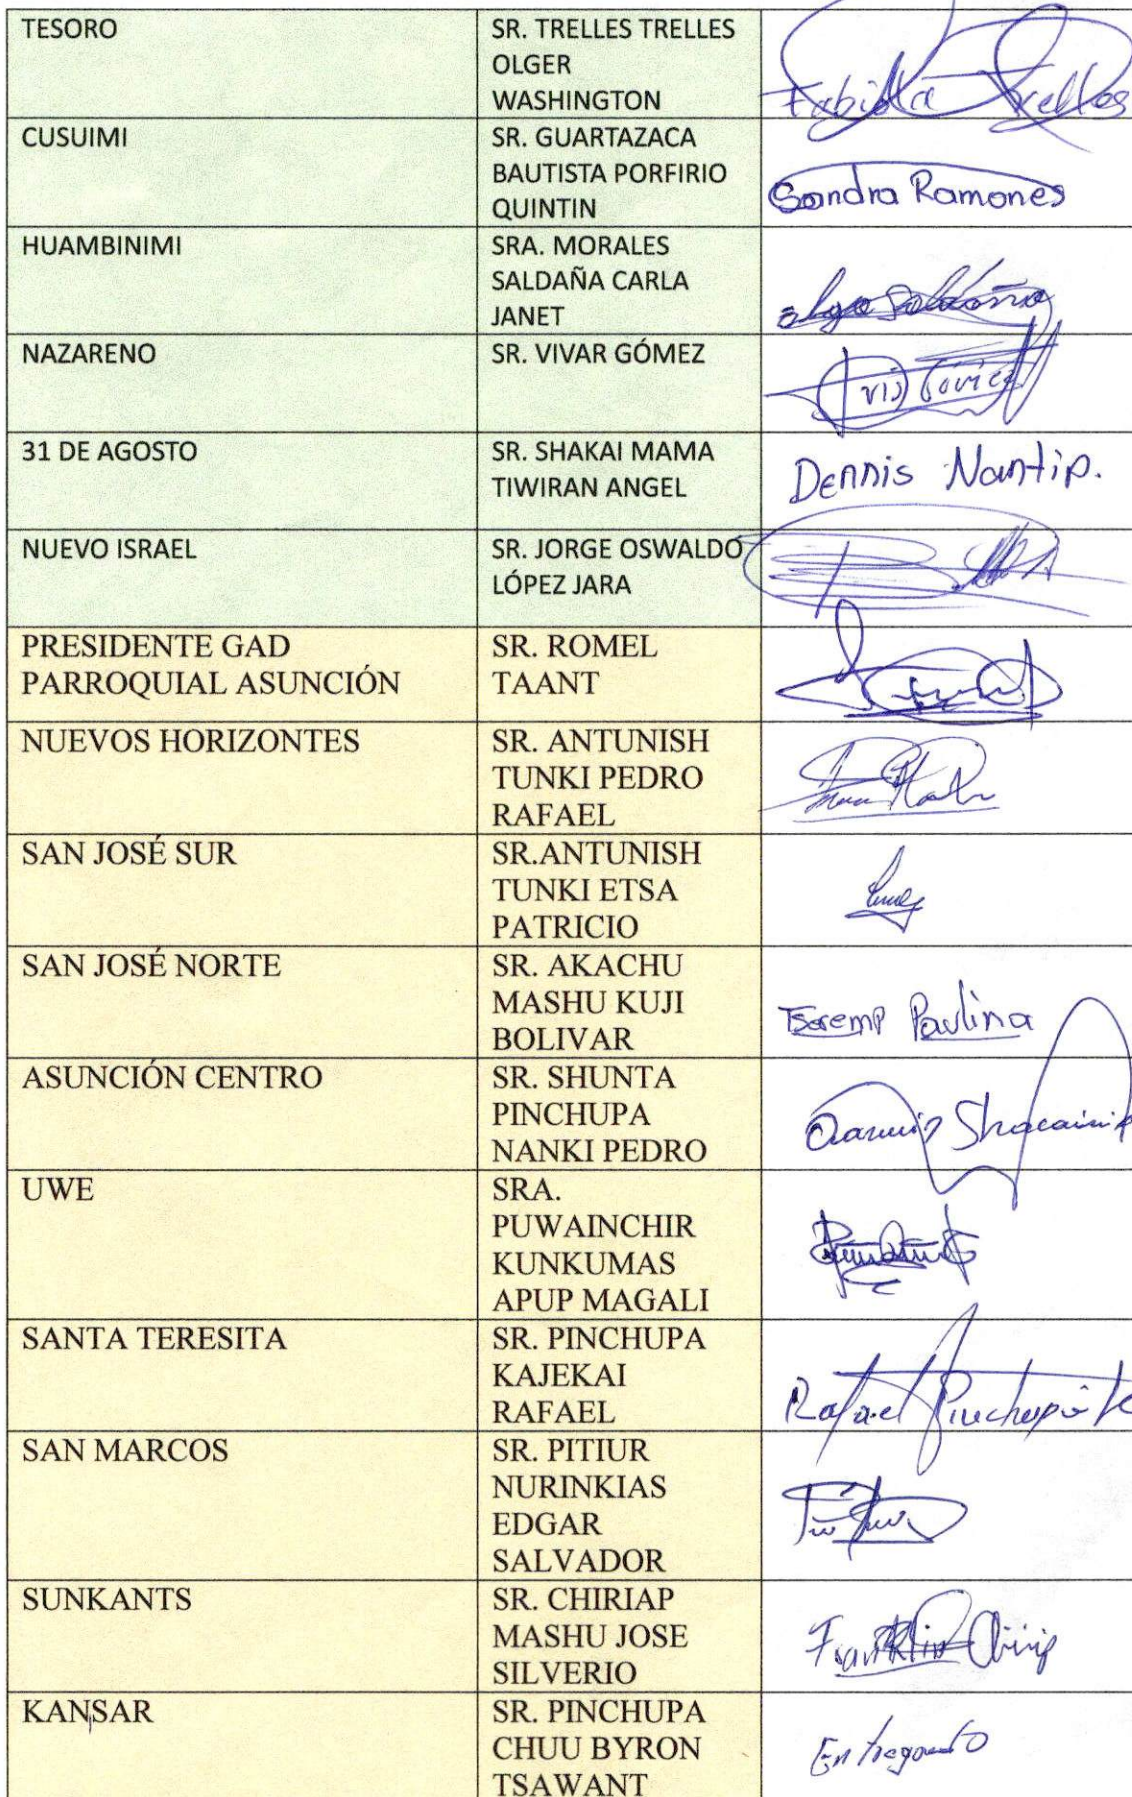 TESORO
SR. TRELLES TRELLES
OLGER
WASHINGTON
Fabiola Trelles
CUSUIMI
SR. GUARTAZACA
BAUTISTA PORFIRIO
QUINTIN
Sandra Ramones
HUAMBINIMI
SRA. MORALES
SALDAÑA CARLA
JANET
Olga Saldaña
NAZARENO
SR. VIVAR GÓMEZ
31 DE AGOSTO
SR. SHAKAI MAMA
TIWIRAN ANGEL
Dennis Nantip.
NUEVO ISRAEL
SR. JORGE OSWALDO
LÓPEZ JARA
PRESIDENTE GAD
PARROQUIAL ASUNCIÓN
SR. ROMEL
TAANT
NUEVOS HORIZONTES
SR. ANTUNISH
TUNKI PEDRO
RAFAEL
SAN JOSÉ SUR
SR.ANTUNISH
TUNKI ETSA
PATRICIO
SAN JOSÉ NORTE
SR. AKACHU
MASHU KUJI
BOLIVAR
Tseremp Paulina
ASUNCIÓN CENTRO
SR. SHUNTA
PINCHUPA
NANKI PEDRO
UWE
SRA.
PUWAINCHIR
KUNKUMAS
APUP MAGALI
SANTA TERESITA
SR. PINCHUPA
KAJEKAI
RAFAEL
Rafael Pinchupa
SAN MARCOS
SR. PITIUR
NURINKIAS
EDGAR
SALVADOR
SUNKANTS
SR. CHIRIAP
MASHU JOSE
SILVERIO
Franklin
KANSAR
SR. PINCHUPA
CHUU BYRON
TSAWANT
Entregado